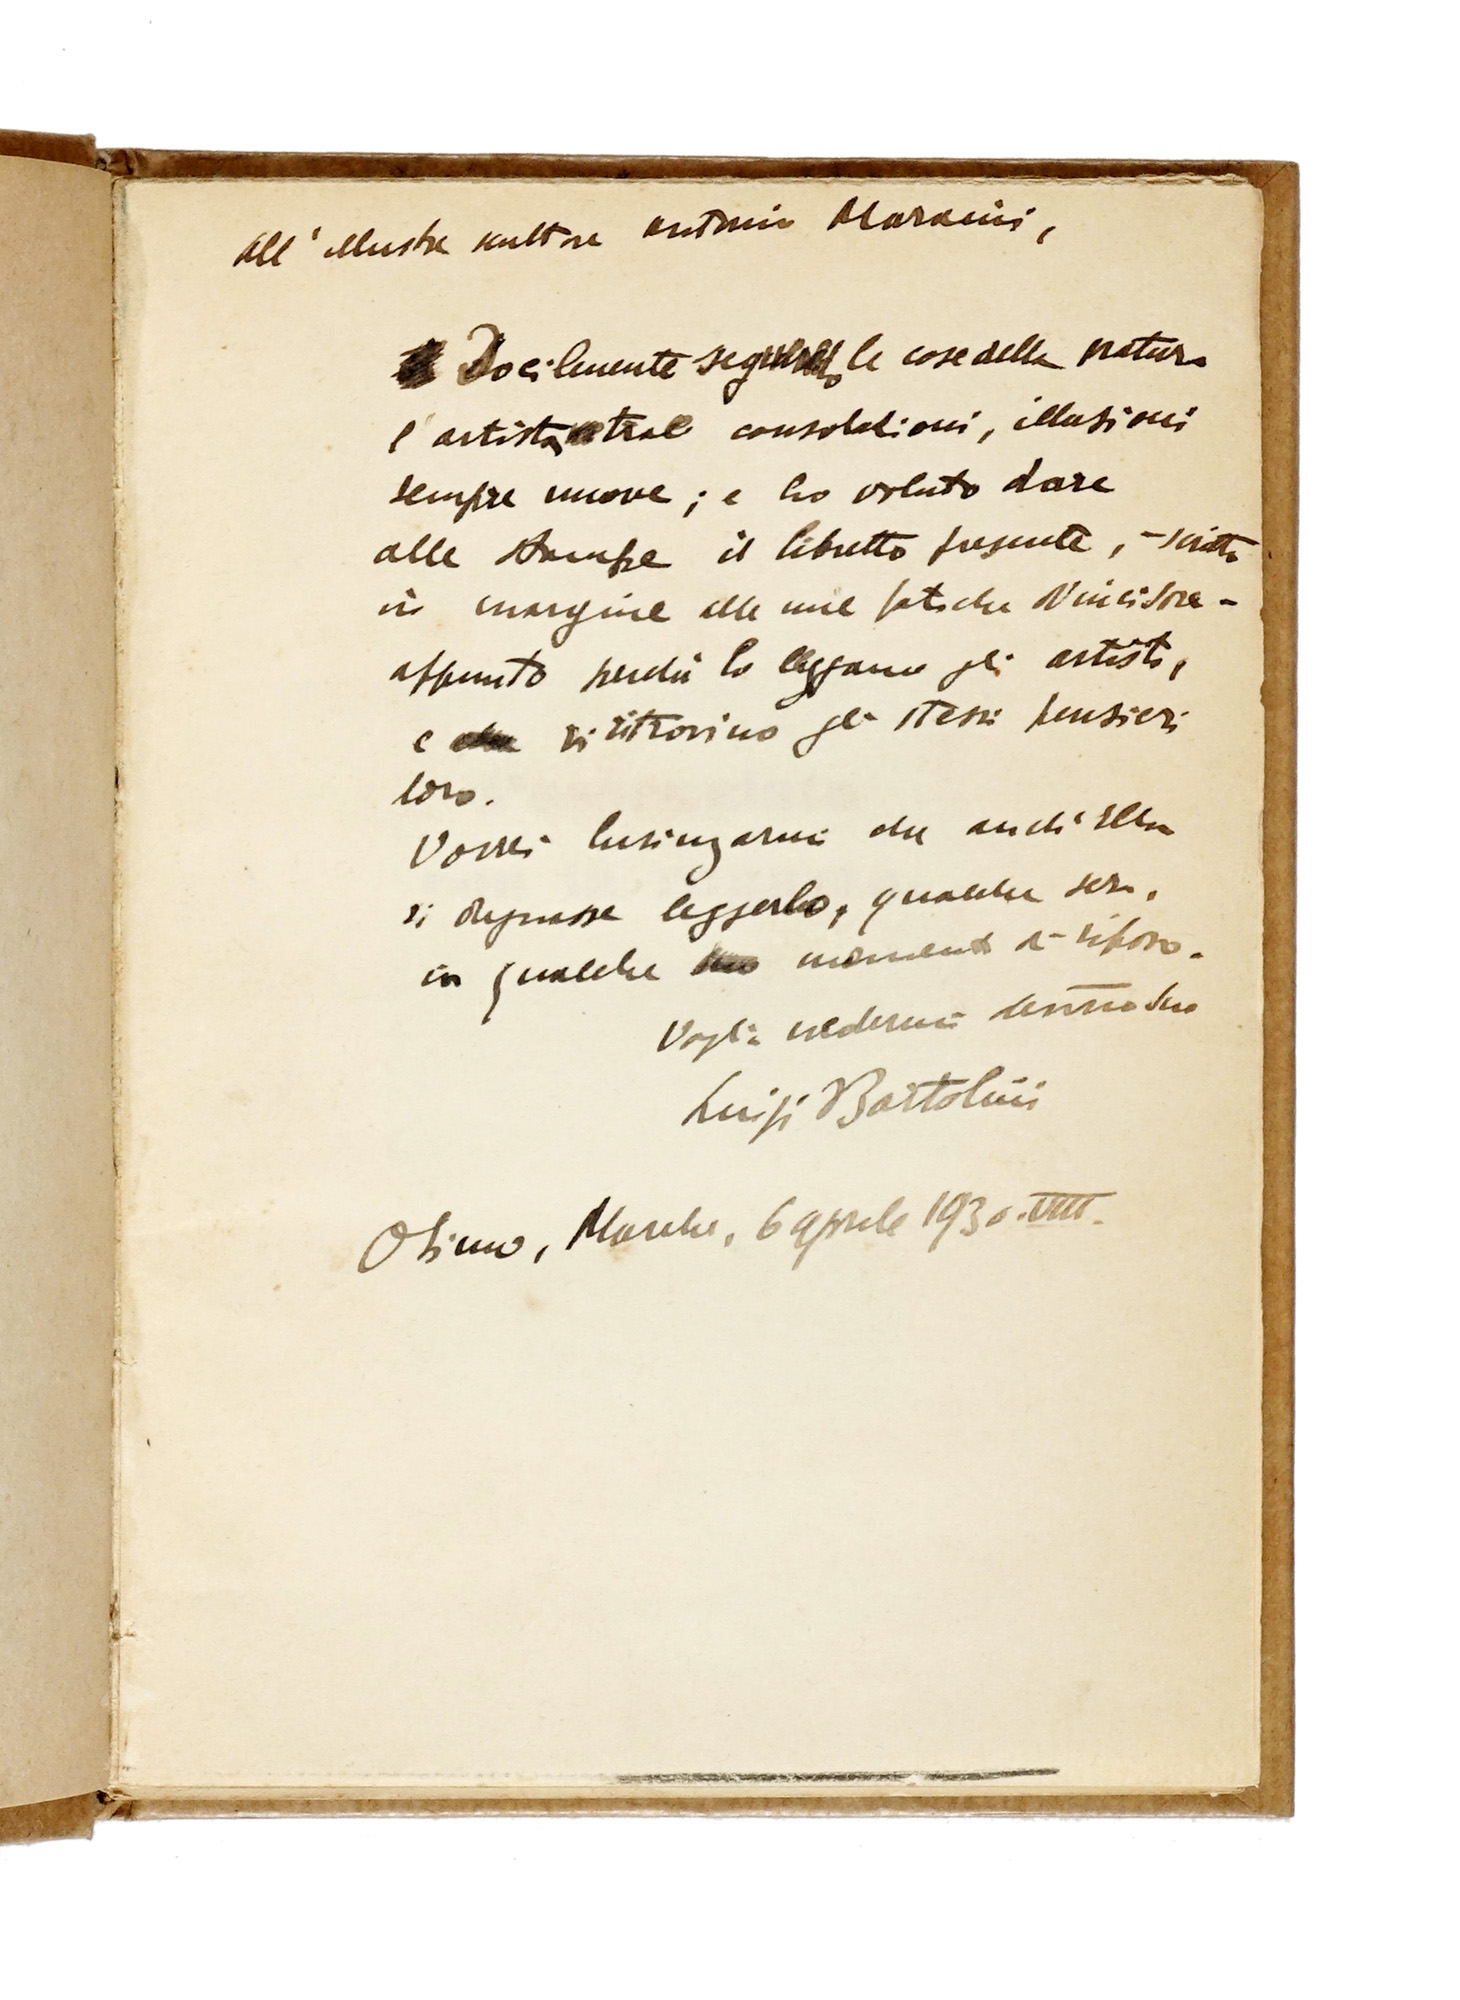 All'illustre scultore Antonio Maraini,
Docilmente seguendo le cose della natura
l'artista trae consolazioni, illusioni
sempre nuove; e ho voluto dare
alle stampe il libretto presente, - scritto
in margine alle mie fatiche d'incisore -
appunto perché lo leggano gli artisti,
e vi ritrovino gli stessi pensieri
loro.
Vorrei lusingarmi che anch'Ella
si degnasse leggerlo, qualche sera,
in qualche momento di riposo.
Voglia credermi devmo Suo
Luigi Bartolini
Osimo, Marche, 6 aprile 1930. VIII.